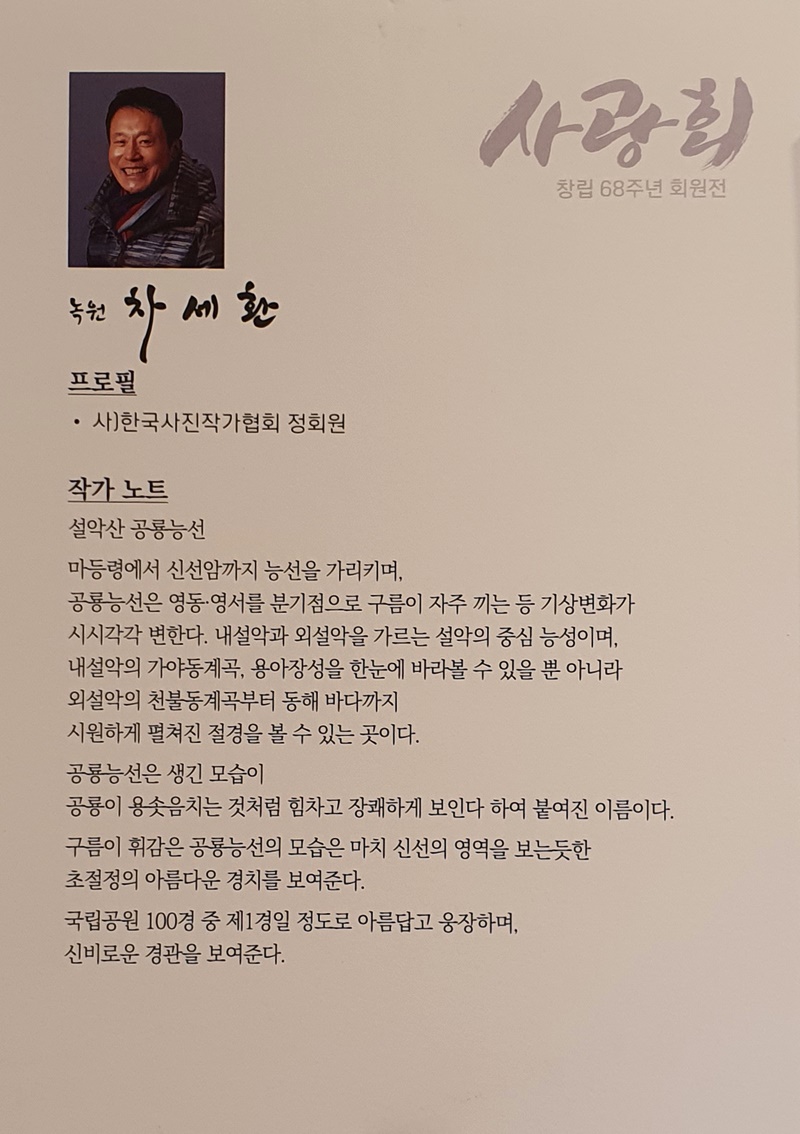 사광회
창립 68주년 회원전
녹원 차세환
프로필
• 사)한국사진작가협회 정회원
작가 노트
설악산 공룡능선
마등령에서 신선암까지 능선을 가리키며,
공룡능선은 영동·영서를 분기점으로 구름이 자주 끼는 등 기상변화가
시시각각 변한다. 내설악과 외설악을 가르는 설악의 중심 능성이며,
내설악의 가야동계곡, 용아장성을 한눈에 바라볼 수 있을 뿐 아니라
외설악의 천불동계곡부터 동해 바다까지
시원하게 펼쳐진 절경을 볼 수 있는 곳이다.
공룡능선은 생긴 모습이
공룡이 용솟음치는 것처럼 힘차고 장쾌하게 보인다 하여 붙여진 이름이다.
구름이 휘감은 공룡능선의 모습은 마치 신선의 영역을 보는듯한
초절정의 아름다운 경치를 보여준다.
국립공원 100경 중 제1경일 정도로 아름답고 웅장하며,
신비로운 경관을 보여준다.